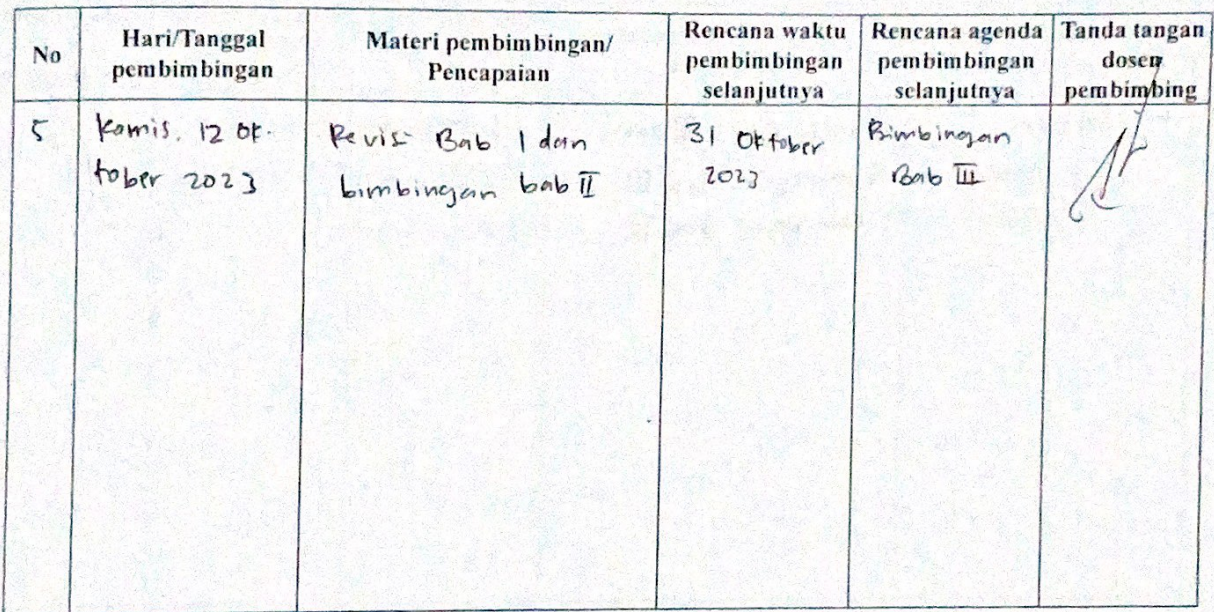 No
Hari/Tanggal
pembimbingan
Materi pembimbingan/
Pencapaian
Rencana waktu
pembimbingan
selanjutnya
Rencana agenda
pembimbingan
selanjutnya
Tanda tangan
dosen
pembimbing
5
Kamis, 12 Ok-
tober 2023
Revisi Bab 1 dan
bimbingan bab II
31 Oktober
2023
Bimbingan
Bab III